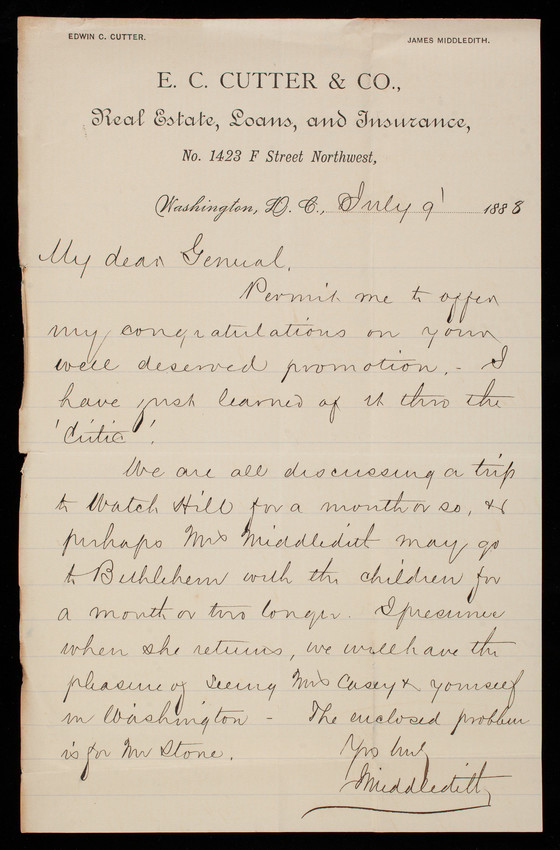 EDWIN C. CUTTER. JAMES MIDDLEDITH.
E. C. CUTTER & CO.,
Real Estate, Loans, and Insurance,
No. 1423 F Street Northwest,
Washington, D. C., July 9' 1888
My dear General.
Permit me to offer
my congratulations on your
well deserved promotion. - I
have just learned of it thro the
'Critic'.
We are all discussing a trip
to Watch Hill for a month or so, &
perhaps Mrs Middledith may go
to Bethlehem with the children for
a month or two longer. I presume
when she returns, we will have the
pleasure of seeing Mrs Casey & yourself
in Washington - The enclosed problem
is for Mr Stone.
Yrs truly
Middledith